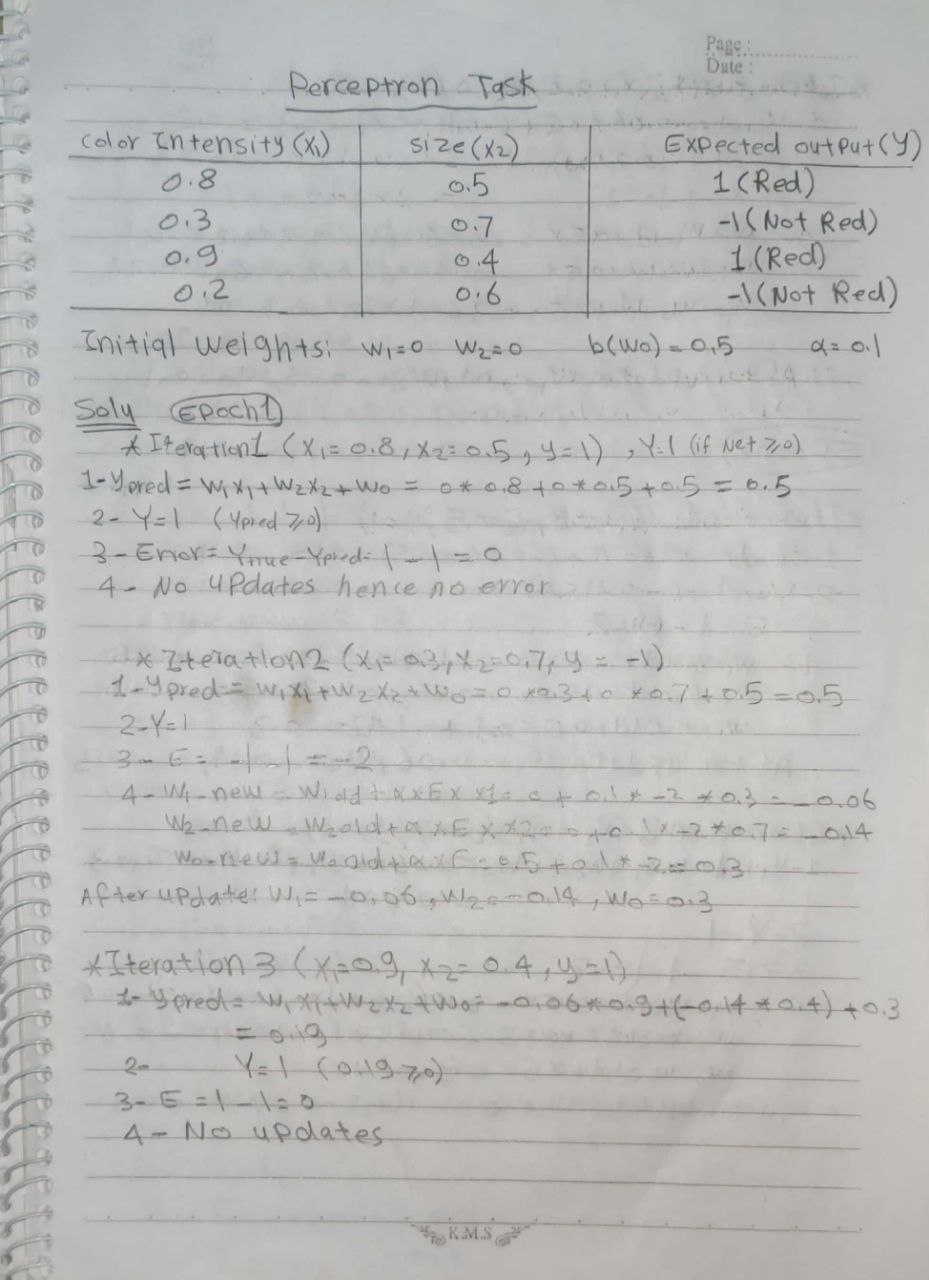 Page :
Date :
Perceptron Task
Color Intensity (X₁) size (X2) Expected output (Y)
0.8 0.5 1 (Red)
0.3 0.7 -1 (Not Red)
0.9 0.4 1 (Red)
0.2 0.6 -1 (Not Red)
Initial Weights: W₁=0 W₂=0 b(W0) = 0.5 α = 0.1
Soly Epoch1
* Iteration1 (X₁=0.8, X₂=0.5, y=1), Y=1 (if Net ≥0)
1- Ypred = W₁X₁+W₂X₂+W0 = 0*0.8+0*0.5+0.5 = 0.5
2- Y=1 (Ypred ≥0)
3- Error = Ytrue-Ypred = 1 - 1 = 0
4- No updates hence no error
* Iteration2 (X₁=0.3, X₂=0.7, y = -1)
1- Ypred = W₁X₁+W₂X₂+W0 = 0*0.3+0*0.7+0.5=0.5
2- Y=1
3- E = -1 -1 = -2
4- W1-new = W1old+α*E*X1 = 0 + 0.1*-2*0.3 = -0.06
W2-new = W2old+α*E*X2 = 0+0.1*-2*0.7 = -0.14
W0-new = W0old+α*E = 0.5+0.1*-2 = 0.3
After update: W₁=-0.06, W₂=-0.14, W0=0.3
* Iteration 3 (X₁=0.9, X₂=0.4, y=1)
1- Ypred = W₁X₁+W₂X₂+W0 = -0.06*0.9+(-0.14*0.4)+0.3
= 0.19
2- Y=1 (0.19≥0)
3- E =1-1=0
4- No updates
K.M.S